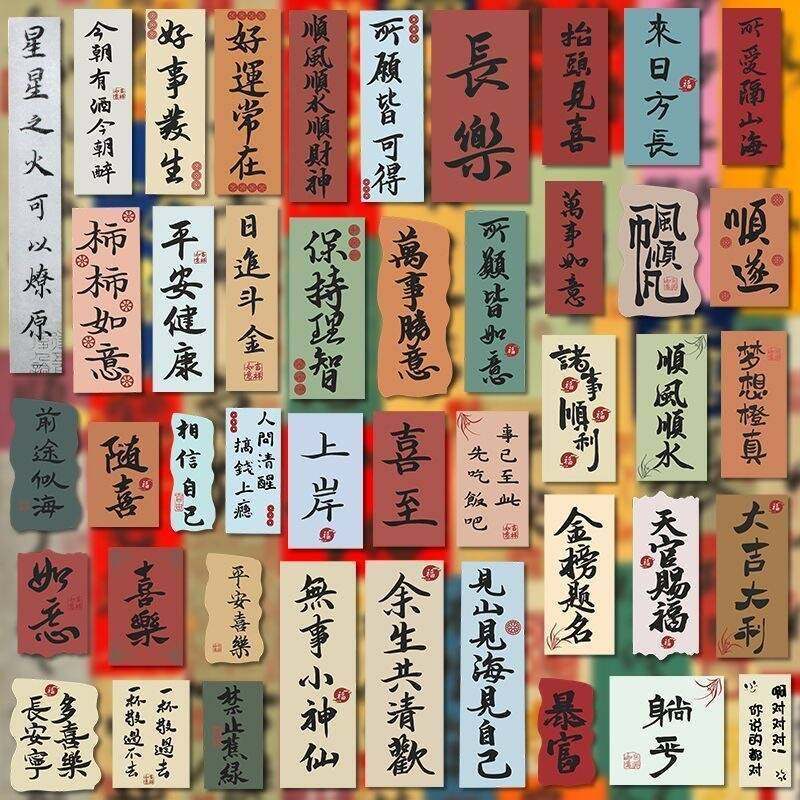 星星之火可以燎原
今朝有酒今朝醉
好事發生
好運常在
順風順水順財神
所願皆可得
長樂
抬頭見喜
來日方長
所愛隔山海
柿柿如意
平安健康
日進斗金
保持理智
萬事勝意
所願皆如意
萬事如意
風順
帆
順遂
前途似海
随喜
相信自己
人間清醒
搞錢上癮
上岸
喜至
事已至此
先吃飯吧
諸事
順利
順風順水
梦想橙真
如意
喜樂
平安喜樂
無事小神仙
余生共清歡
見山見海見自己
金榜題名
天官賜福
大吉大利
多喜樂
長安寧
一杯敬過去
一杯敬過不去
禁止蕉綠
暴富
躺平
啊对对对!
你说的都对
福
吉祥
如意